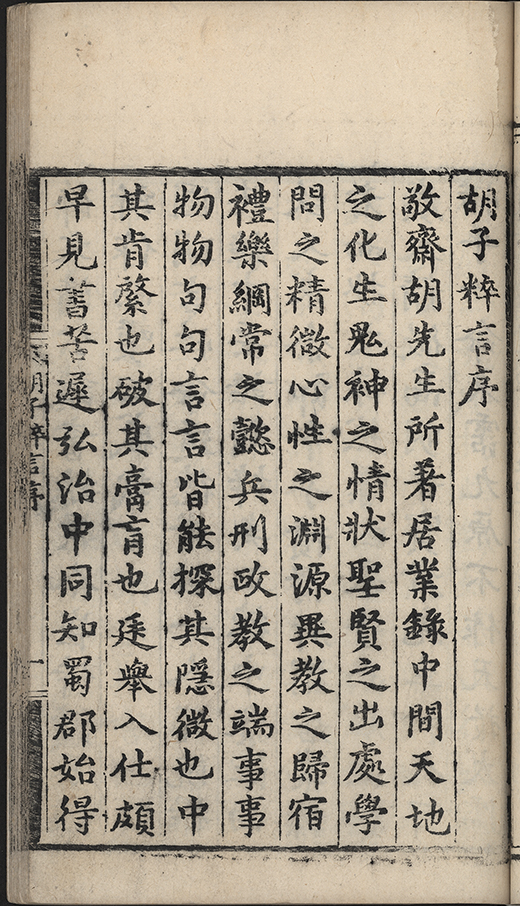 胡子粹言序
敬齋胡先生所著居業錄中間天地
之化生鬼神之情狀聖賢之出處學
問之精微心性之淵源異教之歸宿
禮樂綱常之懿兵刑政教之端事事
物物句句言言皆能探其隱微也中
其肯綮也破其膏肓也廷舉入仕頗
早見書苦遲弘治中同知蜀郡始得
胡子粹言序
一